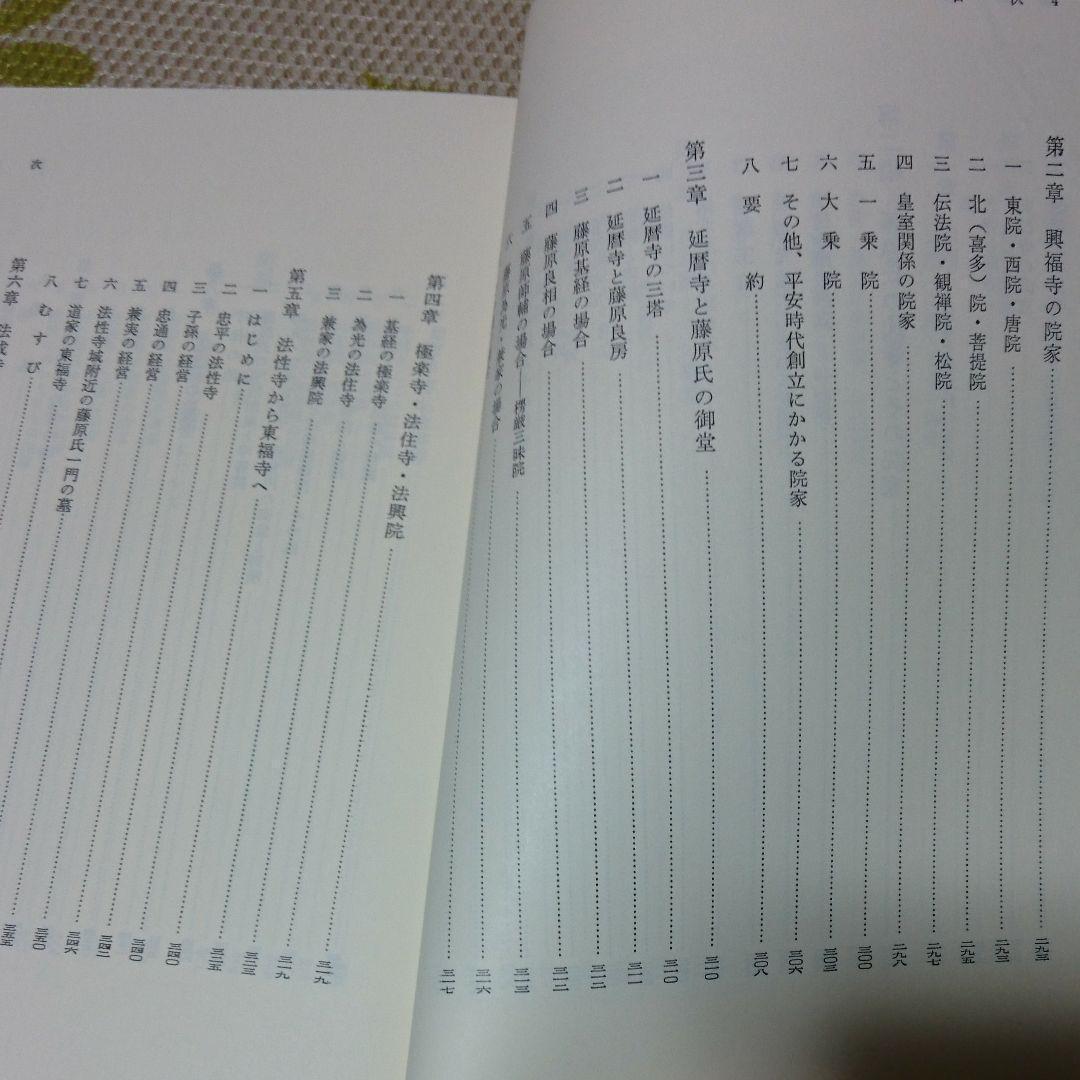 第二章 興福寺の院家……二九三
一 東院・西院・唐院……二九三
二 北(喜多)院・菩提院……二九五
三 伝法院・観禅院・松院……二九七
四 皇室関係の院家……二九八
五 一乗院……三〇〇
六 大乗院……三〇三
七 その他、平安時代創立にかかる院家……三〇六
八 要約……三〇八
第三章 延暦寺と藤原氏の御堂……三一〇
一 延暦寺の三塔……三一〇
二 延暦寺と藤原良房……三一一
三 藤原基経の場合……三一二
四 藤原良相の場合……三一二
五 藤原師輔の場合――楞厳三昧院……三一三
兼家の場合……三一六
……三一七
次
第四章 極楽寺・法住寺・法興院……三一九
一 基経の極楽寺……三一九
二 為光の法住寺……三二三
三 兼家の法興院……三二五
第五章 法性寺から東福寺へ……三四〇
一 はじめに……三四〇
二 忠平の法性寺……三四二
三 子孫の経営……三四六
四 忠通の経営……三五〇
五 兼実の経営……三五五
六 法性寺城附近の藤原氏一門の墓
七 道家の東福寺
八 むすび
第六章